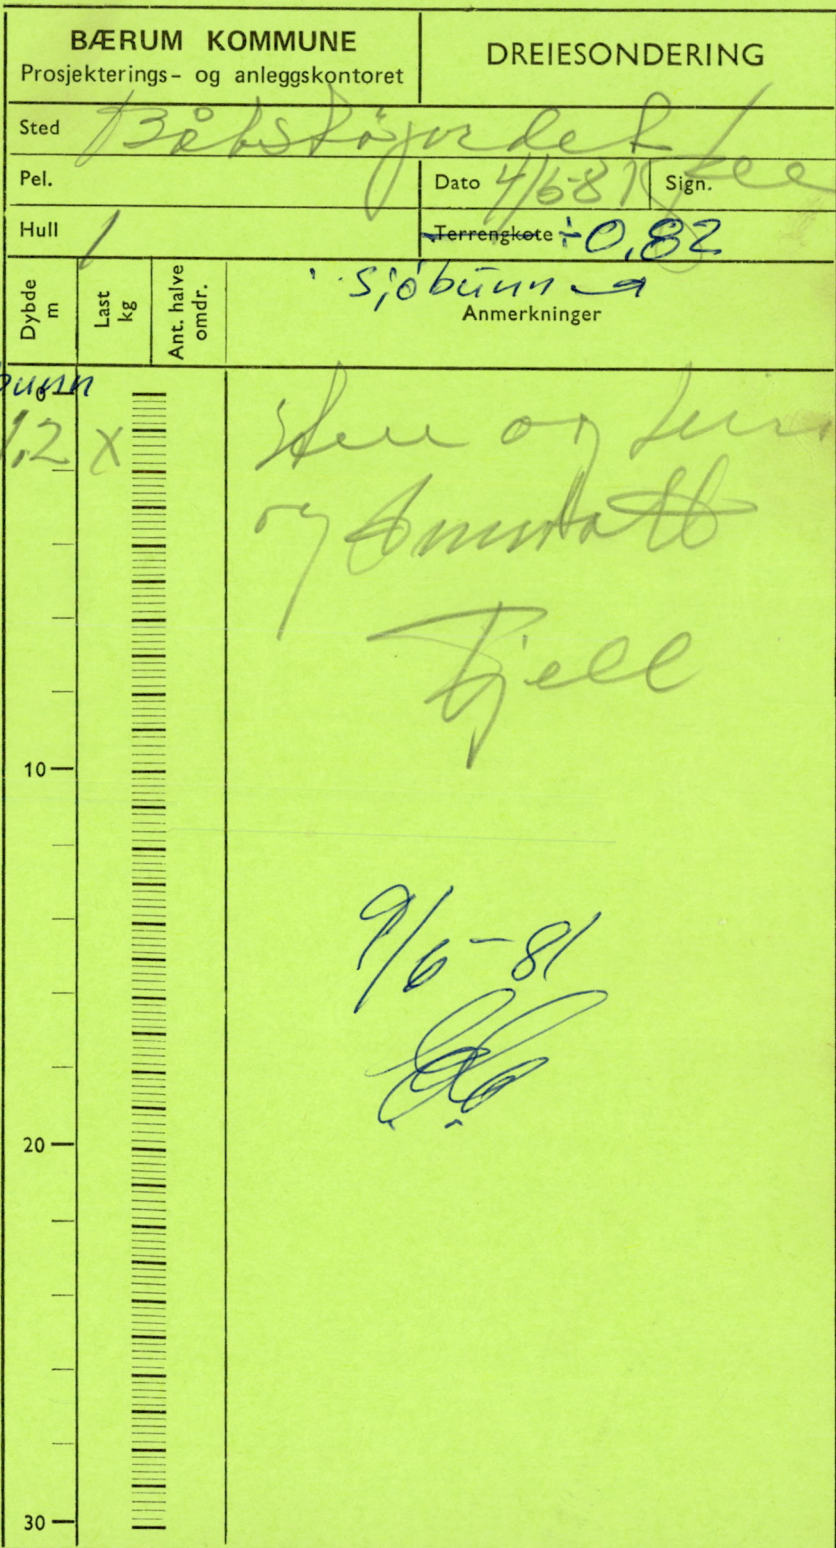 BÆRUM KOMMUNE
Prosjekterings- og anleggskontoret
DREIESONDERING
Sted
Pel.
Dato 4/6-81
Sign.
Hull 1
Terrengkote ÷0,82
Sjöbunn
Dybde m
Last kg
Ant. halve omdr.
Anmerkninger
bunn
0
1,2 x
og
og
Fjell
10
9/6-81
20
30